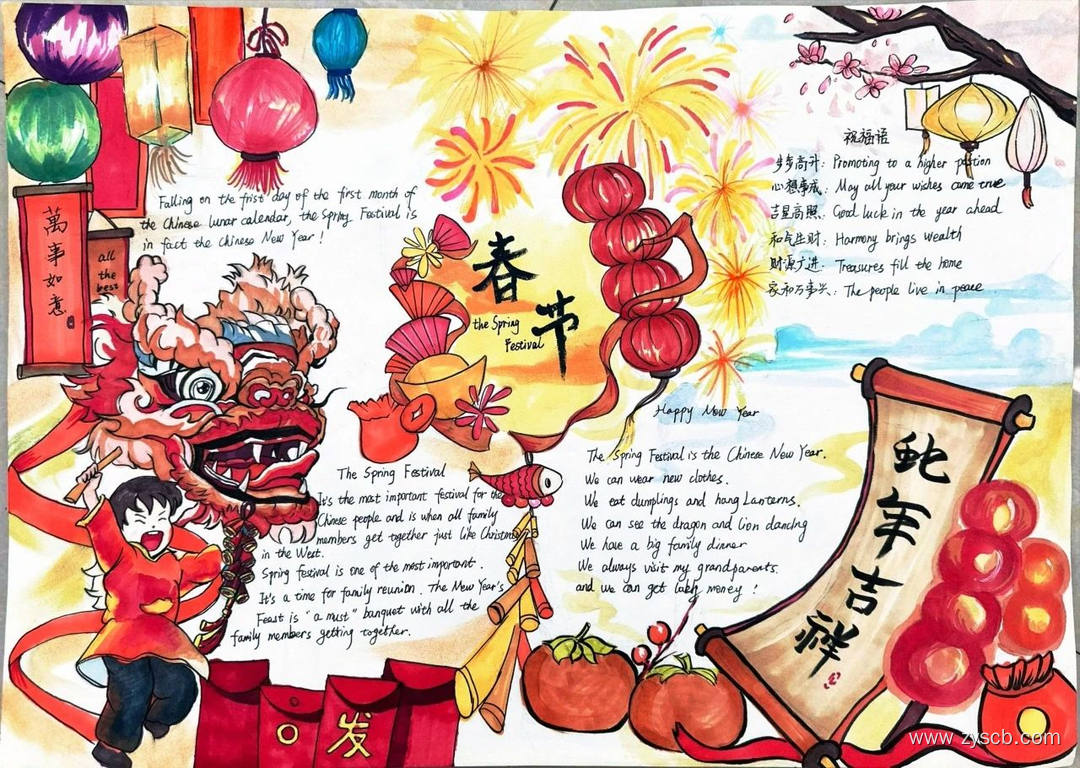 萬事如意
all
the
best
Falling on the first day of the first month of
the Chinese lunar calendar, the Spring Festival is
in fact the Chinese New Year!
春节
the Spring
Festival
祝福语
步步高升: Promoting to a higher position
心想事成: May all your wishes come true
吉星高照: Good luck in the year ahead
和气生财: Harmony brings wealth
财源广进: Treasures fill the home
家和万事兴: The people live in peace
The Spring Festival
It's the most important festival for the
Chinese people and is when all family
members get together just like Christmas
in the West.
Spring festival is one of the most important.
It's a time for family reunion. The New Year's
Feast is "a must" banquet with all the
family members getting together.
Happy New Year
The Spring Festival is the Chinese New Year.
We can wear new clothes.
We eat dumplings and hang Lanterns.
We can see the dragon and lion dancing
We have a big family dinner
We always visit my grandparents.
and we can get lucky money!
蛇年吉祥
发
www.zyscb.com